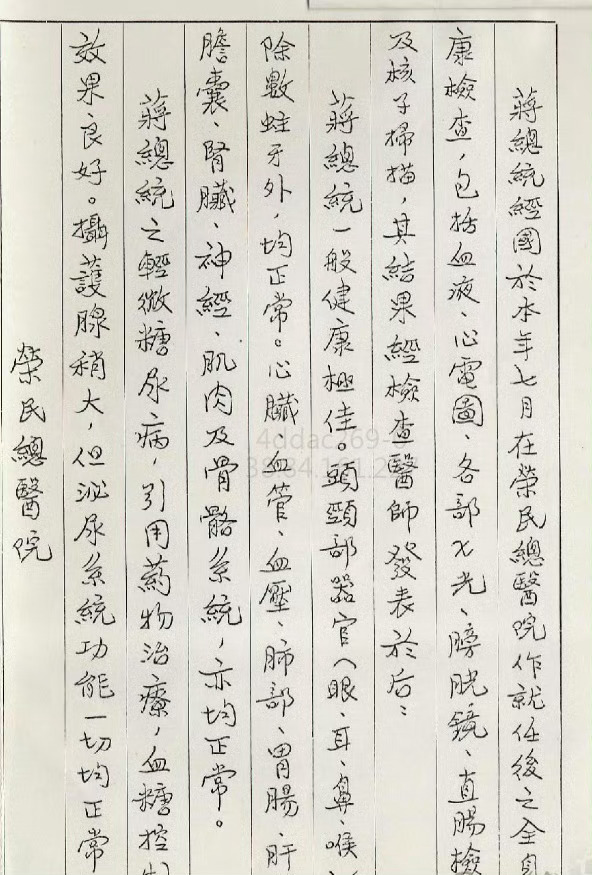 蔣總統經國於本年七月在榮民總醫院作就任後之全身
康檢查，包括血液、心電圖、各部X光、膀胱鏡、直腸檢
及核子掃描，其結果經檢查醫師發表於后：
蔣總統一般健康極佳。頭頸部器官（眼、耳、鼻、喉
除數蛀牙外，均正常。心臟血管、血壓、肺部、胃腸、肝
膽囊、腎臟、神經、肌肉及骨骼系統，亦均正常。
蔣總統之輕微糖尿病，引用藥物治療，血糖控
效果良好。攝護腺稍大，但泌尿系統功能一切均正常
榮民總醫院